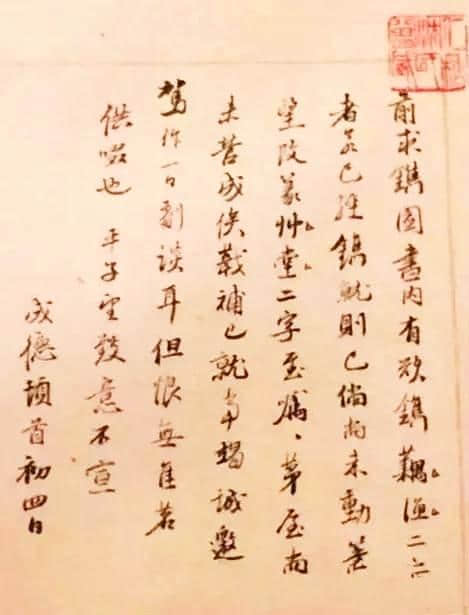 前求鐫圖書內有欲鐫藕漁二字
者若已經鐫就則已倘尚未動筆
望改篆艸堂二字至囑〻茅屋尚
未營成俟葺補已就當竭誠邀
駕作一日劇談耳但恨無佳茗
供啜也 平子望致意不宣
成德頓首初四日